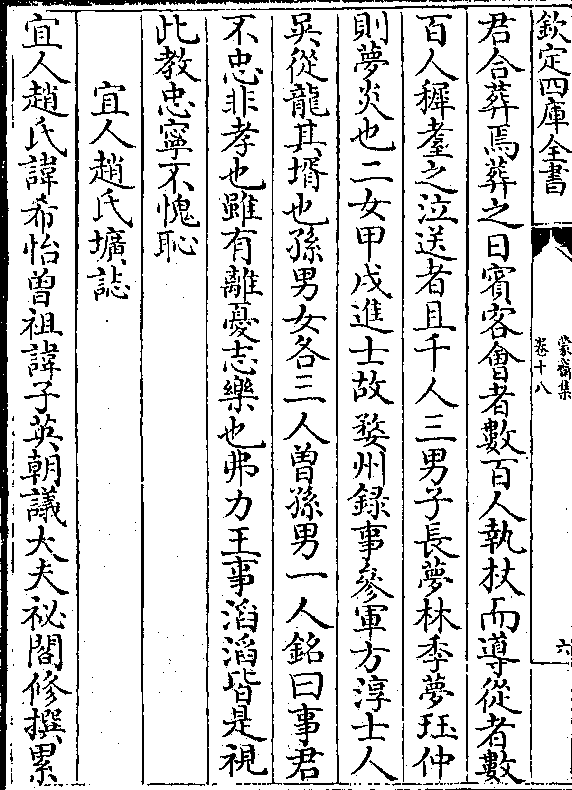 欽定四庫全書
蒙齋集
卷十八
六
君合葬焉葬之日賓客會者數百人執杖而導從者數
百人穉耋之泣送者且千人三男子長夢林季夢玨仲
則夢炎也二女甲戌進士故婺州錄事參軍方淳士人
吳從龍其壻也孫男女各三人曽孫男一人銘曰事君
不忠非孝也雖有離憂志樂也弗力王事滔滔皆是視
此教忠寧不愧恥
宜人趙氏壙誌
宜人趙氏諱希怡曽祖諱子英朝議大夫祕閣修撰累